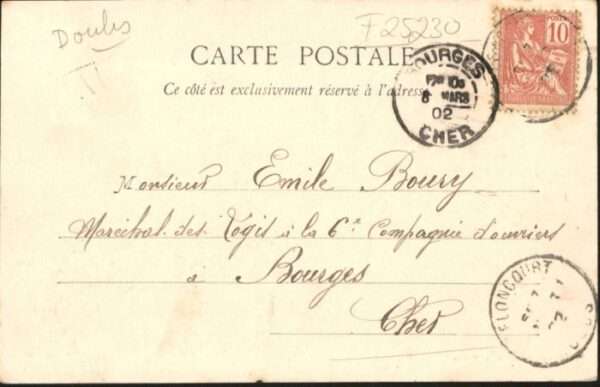 Doubs
F25230
CARTE POSTALE
Ce côté est exclusivement réservé à l'adresse
10
BOURGES
8 MARS
02
CHER
Monsieur Emile Boury
Maréchal-des-Logis à la 6e Compagnie d'ouvriers
à Bourges
Cher